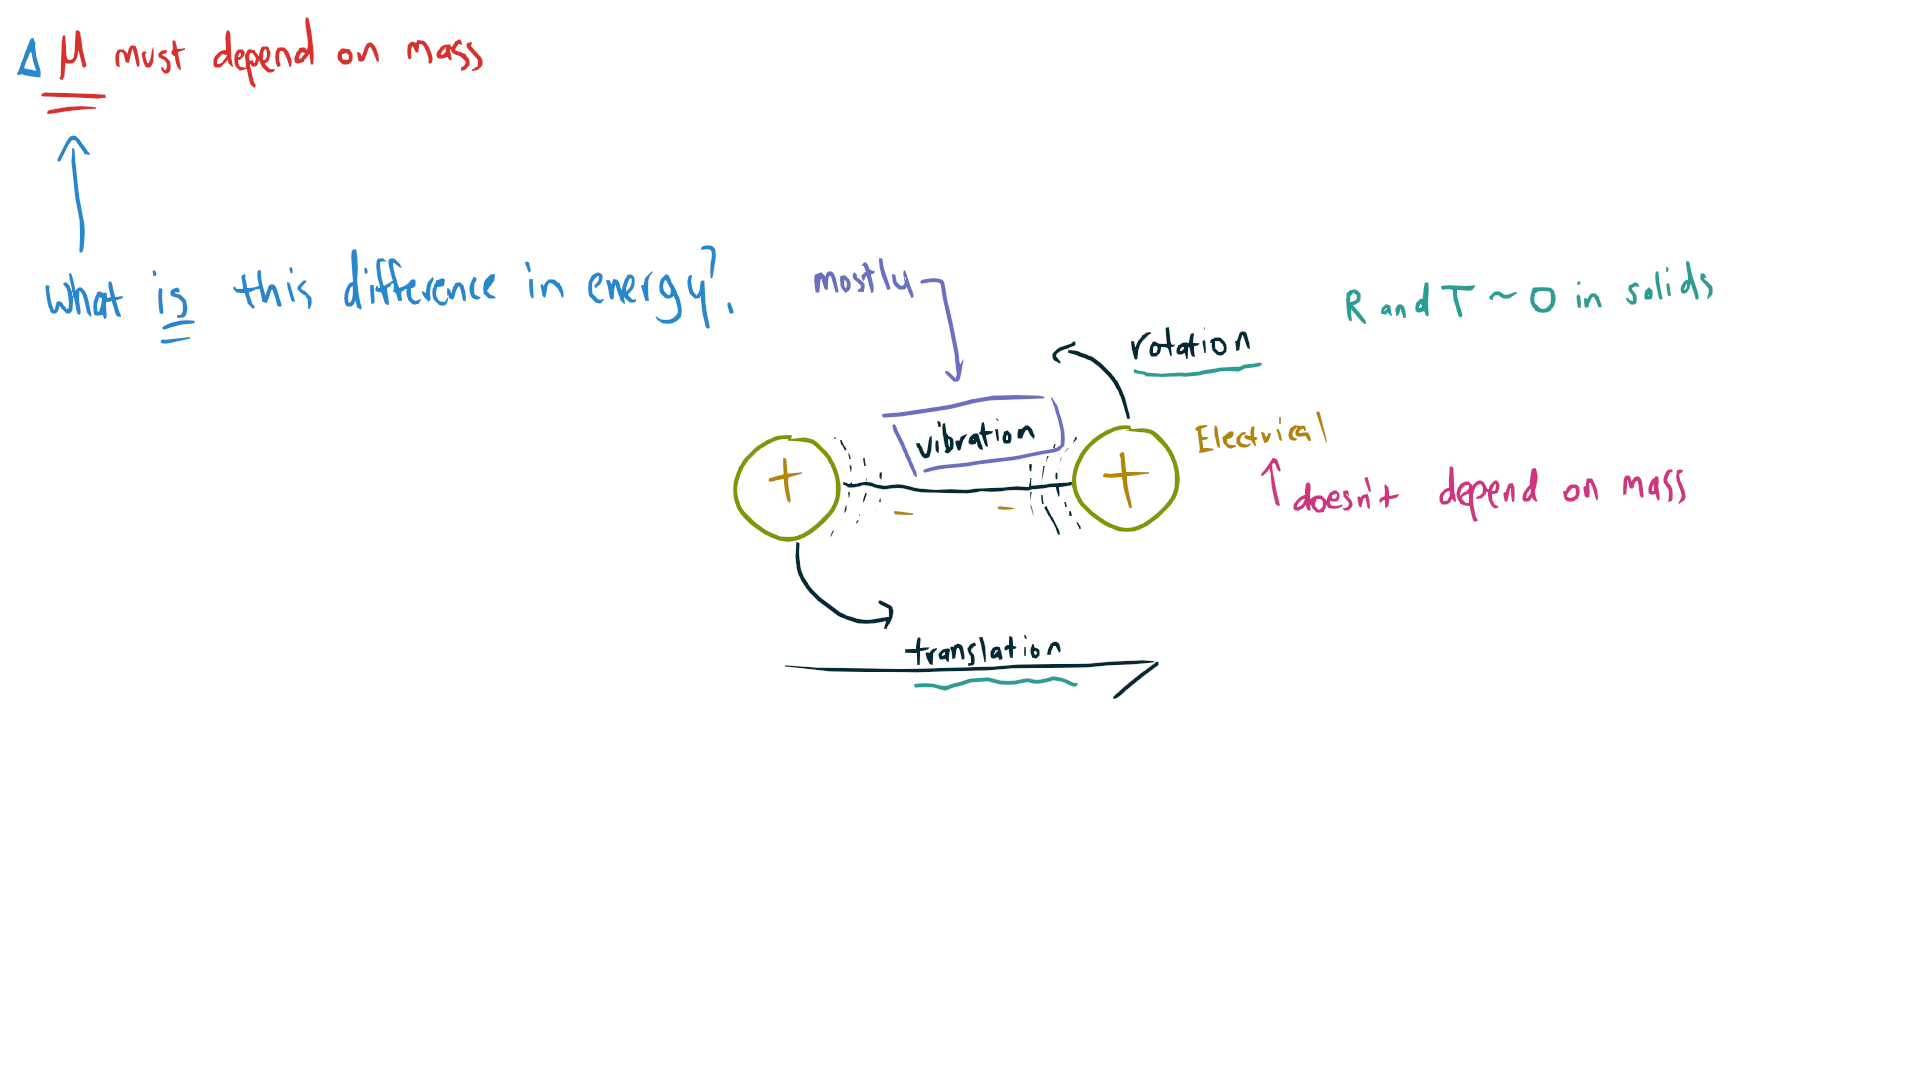 Δ μ must depend on mass
what is this difference in energy?
mostly
R and T ~ 0 in solids
rotation
vibration
Electrical
+
+
doesn't depend on mass
- -
translation